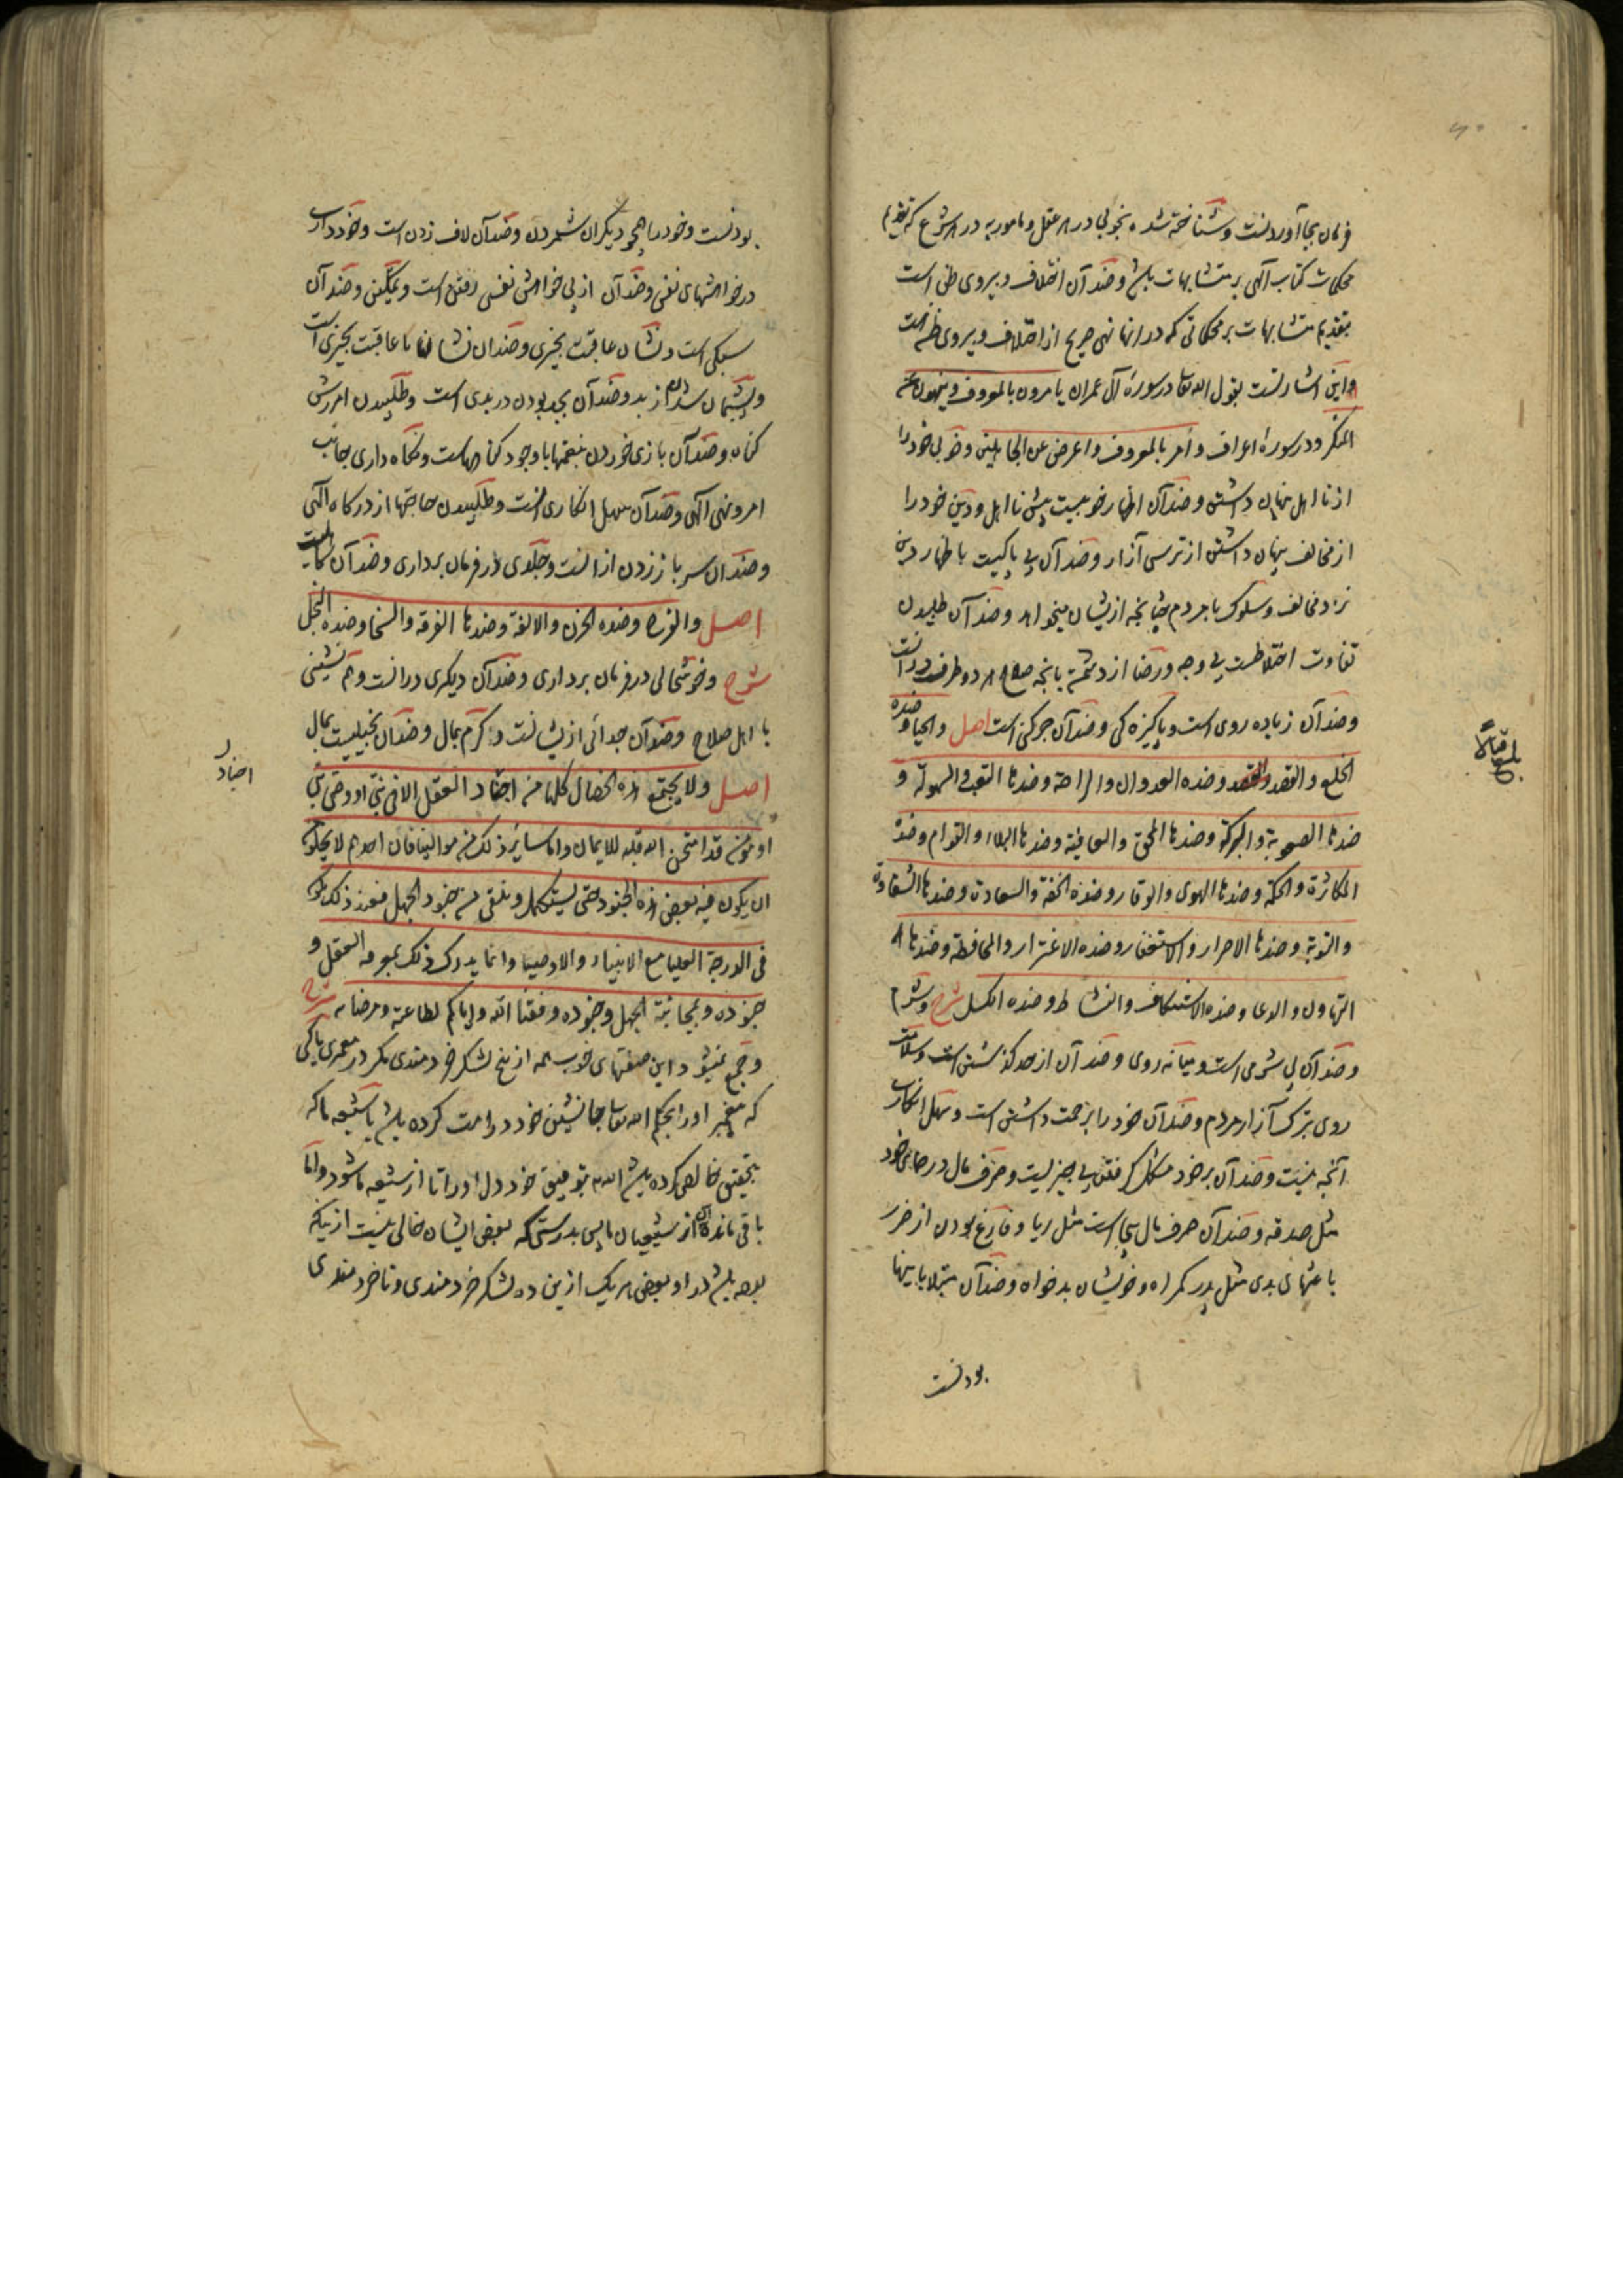 فرمان بجا آوردنست و شناخته شده بخوبی در هر عقل و مامور به در هر شرع که تقدیم
محکمات کتاب الهی بر متشابهات باشد و ضد آن اختلاف و پیروی ظن است
بتقدیم متشابهات بر محکماتی که در آنها نهی صریح از اختلاف و پیروی ظن هست
و این اشارتست بقول الله تعا در سورهٔ آل عمران یامرون بالمعروف و ینهون عن
المنکر و در سورهٔ اعراف و أمر بالمعروف و اعرض عن الجاهلین و خوبی خود را
از نااهل پنهان داشتن و ضد آن اظهار خوبیست پیش نااهل و دین خود را
از مخالف پنهان داشتن از ترس آزار و ضد آن بی باکیست باظهار دین
نزد مخالف و سلوک با مردم چنانچه ازیشان میخواهد و ضد آن طلبیدن
تفاوت اختلاطست بی وجه و رضا از دشمن بانچه صلاح هر دو طرف در انست
و ضد آن زیاده روی است و پاکیزه کی و ضد آن چرکنی است اصل و الحیا و ضده
الخلع و القصد و ضده العدوان و الراحة و ضدها التعب و السهولة و
ضدها الصعوبة و البرکة و ضدها المحق و العافیة و ضدها البلاء و القوام و ضده
المکاثرة و الحکمة و ضدها الهوی و الوقار و ضده الخفة و السعادة و ضدها الشقاوة
و التوبة و ضدها الاصرار و الاستغفار و ضده الاغترار و المحافظة و ضدها
التهاون و الدعا و ضده الاستنکاف و النشاط و ضده الکسل شرح و شرم
و ضد آن بی شرمی است و میانه روی و ضد آن از حد گذشتن است و سلامت
روی بترک آزار مردم و ضد آن خود را بزحمت داشتن است و سهل انکاری
آنچه نیست و ضد آن بر خود مشکل گرفتن بی چیزیست و صرف مال در جای خود
مثل صدقه و ضد آن صرف مال بیجا است مثل ریا و فارغ بودن از ضرر
باعثهای بدی مثل پدر گمراه و خویشان بدخواه و ضد آن مبتلا باینها
بودنست
بودنست و خود را همچو دیگران شمردن و ضد آن لاف زدن است و خودداری
در خواهشهای نفس و ضد آن از پی خواهش نفس رفتن است و تمکین و ضد آن
سبکی است و نشان عاقبت بخیری و ضد آن نشان ناعاقبت بخیری است
و پشیمان شدن از بد و ضد آن بجد بودن در بدی است و طلبیدن امرزش
کناه و ضد آن بازی خوردن بنعمتها با وجود کناهاست و نکاه داری جانب
امر و نهی الهی و ضد آن سهل انکاری انست و طلبیدن حاجتها از درکاه الهی
و ضد آن سر باز زدن از انست و جلدی در فرمان برداری و ضد آن کاهلیست
اصل و الفرح و ضده الحزن و الالفة و ضدها الفرقة و السخا و ضده البخل
شرح و خوشحالی در فرمان برداری و ضد آن دیگری در انست و هم نشینی
با اهل صلاح و ضد آن جدائی ازیشانست و کرم بمال و ضد آن بخیلیست بمال
اصل و لا یجتمع هذه الخصال کلها من اجناد العقل الا فی نبی او وصی نبی
اجناد
او مؤمن قد امتحن الله قلبه للایمان و اما سایر ذلک من موالینا فان احدهم لا یخلو من
ان یکون فیه بعض هذه الجنود حتی یستکمل و ینقی من جنود الجهل فعند ذلک یکون
فی الدرجة العلیا مع الانبیاء و الاوصیاء و انما یدرک ذلک بمعرفة العقل و
جنوده و بمجانبة الجهل و جنوده وفقنا الله و ایاکم لطاعته و مرضاته شرح
و جمع نمیشود این صفتهای خوب همه از پنج لشکر خردمندی مکر در پیغمبری یا کسی
که پیغمبر او را بحکم الله تعا جانشین خود در امت کرده باشد یا شیعه ما که
بتحقیق خالص کرده باشد الله بتوفیق خود دل او را تا از شیعه ما شود و اما
باقی ماندگان از شیعیان ما پس بدرستی که بعض ایشان خالی نیست ازینکه
بوده باشد در او بعض هر یک ازین ده لشکر خردمندی و ناخردمندی